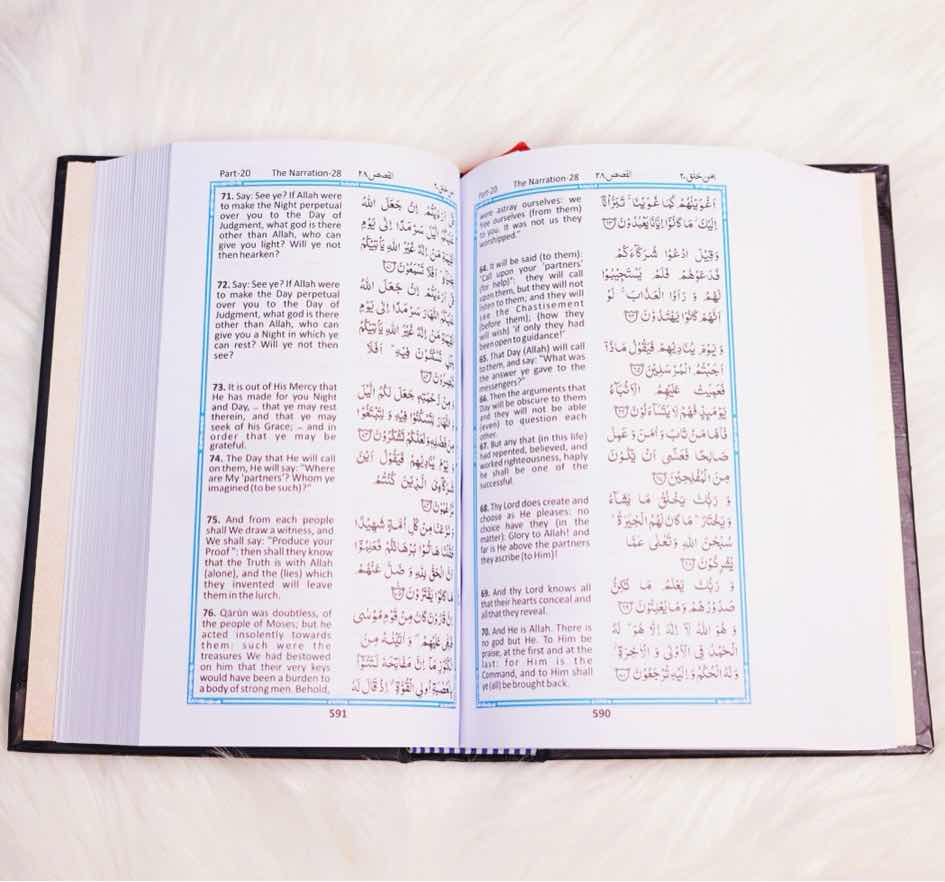 Part-20 The Narration-28 القصص ٢٨ امن خلق ٢٠
were astray ourselves: we
free ourselves (from them)
to you. It was not us they
worshipped."
64. It will be said (to them):
"Call upon your 'partners'
(for help)": they will call
upon them, but they will not
listen to them; and they will
see the Chastisement
(before them); {how they
will wish} 'if only they had
been open to guidance!'
65. That Day (Allah) will call
to them, and say: "What was
the answer ye gave to the
messengers?"
66. Then the arguments that
Day will be obscure to them
and they will not be able
(even) to question each
other.
67. But any that (in this life)
had repented, believed, and
worked righteousness, haply
he shall be one of the
successful.
68. Thy Lord does create and
choose as He pleases: no
choice have they (in the
matter): Glory to Allah! and
far is He above the partners
they ascribe (to Him)!
69. And thy Lord knows all
that their hearts conceal and
all that they reveal.
70. And He is Allah. There is
no god but He. To Him be
praise, at the first and at the
last: for Him is the
Command, and to Him shall
ye (all) be brought back.
اَغْوَيْنٰهُمْ كَمَا غَوَيْنَا ۚ تَبَرَّاْنَاۤ
اِلَيْكَ ۚ مَا كَانُوْۤا اِيَّانَا يَعْبُدُوْنَ ﴿٦٣﴾
وَقِيْلَ ادْعُوْا شُرَكَآءَكُمْ
فَدَعَوْهُمْ فَلَمْ يَسْتَجِيْبُوْا
لَهُمْ وَ رَاَوُا الْعَذَابَ ۚ لَوْ
اَنَّهُمْ كَانُوْا يَهْتَدُوْنَ ﴿٦٤﴾
وَ يَوْمَ يُنَادِيْهِمْ فَيَقُوْلُ مَاذَاۤ
اَجَبْتُمُ الْمُرْسَلِيْنَ ﴿٦٥﴾
فَعَمِيَتْ عَلَيْهِمُ الْاَنْۢبَآءُ
يَوْمَئِذٍ فَهُمْ لَا يَتَسَآءَلُوْنَ ﴿٦٦﴾
فَاَمَّا مَنْ تَابَ وَ اٰمَنَ وَ عَمِلَ
صَالِحًا فَعَسٰۤى اَنْ يَّكُوْنَ
مِنَ الْمُفْلِحِيْنَ ﴿٦٧﴾
وَ رَبُّكَ يَخْلُقُ مَا يَشَآءُ
وَ يَخْتَارُ ؕ مَا كَانَ لَهُمُ الْخِيَرَةُ ؕ
سُبْحٰنَ اللّٰهِ وَ تَعٰلٰى عَمَّا
يُشْرِكُوْنَ ﴿٦٨﴾
وَ رَبُّكَ يَعْلَمُ مَا تُكِنُّ
صُدُوْرُهُمْ وَ مَا يُعْلِنُوْنَ ﴿٦٩﴾
وَ هُوَ اللّٰهُ لَاۤ اِلٰهَ اِلَّا هُوَ ؕ لَهُ
الْحَمْدُ فِى الْاُوْلٰى وَ الْاٰخِرَةِ ۫
وَ لَهُ الْحُكْمُ وَ اِلَيْهِ تُرْجَعُوْنَ ﴿٧٠﴾
590
Part-20 The Narration-28 القصص ٢٨
71. Say: See ye? If Allah were
to make the Night perpetual
over you to the Day of
Judgment, what god is there
other than Allah, who can
give you light? Will ye not
then hearken?
72. Say: See ye? If Allah were
to make the Day perpetual
over you to the Day of
Judgment, what god is there
other than Allah, who can
give you a Night in which ye
can rest? Will ye not then
see?
73. It is out of His Mercy that
He has made for you Night
and Day, -- that ye may rest
therein, and that ye may
seek of his Grace; -- and in
order that ye may be
grateful.
74. The Day that He will call
on them, He will say: "Where
are My 'partners'? Whom ye
imagined (to be such)?"
75. And from each people
shall We draw a witness, and
We shall say: "Produce your
Proof": then shall they know
that the Truth is with Allah
(alone), and the (lies) which
they invented will leave
them in the lurch.
76. Qārūn was doubtless, of
the people of Moses; but he
acted insolently towards
them: such were the
treasures We had bestowed
on him that their very keys
would have been a burden to
a body of strong men. Behold,
اَرَءَيْتُمْ اِنْ جَعَلَ اللّٰهُ
الَّيْلَ سَرْمَدًا اِلٰى يَوْمِ
مَنْ اِلٰهٌ غَيْرُ اللّٰهِ يَاْتِيْكُمْ
اَفَلَا تَسْمَعُوْنَ ﴿٧١﴾
اَرَءَيْتُمْ اِنْ جَعَلَ اللّٰهُ
النَّهَارَ سَرْمَدًا اِلٰى يَوْمِ
مَنْ اِلٰهٌ غَيْرُ اللّٰهِ يَاْتِيْكُمْ
تَسْكُنُوْنَ فِيْهِ ؕ اَفَلَا
تُبْصِرُوْنَ ﴿٧٢﴾
وَ مِنْ رَّحْمَتِهٖ جَعَلَ لَكُمُ الَّيْلَ
وَ النَّهَارَ لِتَسْكُنُوْا فِيْهِ وَ لِتَبْتَغُوْا
مِنْ فَضْلِهٖ وَ لَعَلَّكُمْ تَشْكُرُوْنَ ﴿٧٣﴾
وَ يَوْمَ يُنَادِيْهِمْ فَيَقُوْلُ اَيْنَ
شُرَكَآءِىَ الَّذِيْنَ كُنْتُمْ
تَزْعُمُوْنَ ﴿٧٤﴾
وَ نَزَعْنَا مِنْ كُلِّ اُمَّةٍ شَهِيْدًا
فَقُلْنَا هَاتُوْا بُرْهَانَكُمْ فَعَلِمُوْۤا
اَنَّ الْحَقَّ لِلّٰهِ وَ ضَلَّ عَنْهُمْ
مَّا كَانُوْا يَفْتَرُوْنَ ﴿٧٥﴾
اِنَّ قَارُوْنَ كَانَ مِنْ قَوْمِ مُوْسٰى
فَبَغٰى عَلَيْهِمْ ۪ وَ اٰتَيْنٰهُ مِنَ
الْكُنُوْزِ مَاۤ اِنَّ مَفَاتِحَهٗ لَتَنُوْٓاُ
بِالْعُصْبَةِ اُولِى الْقُوَّةِ ۗ اِذْ قَالَ لَهٗ
591